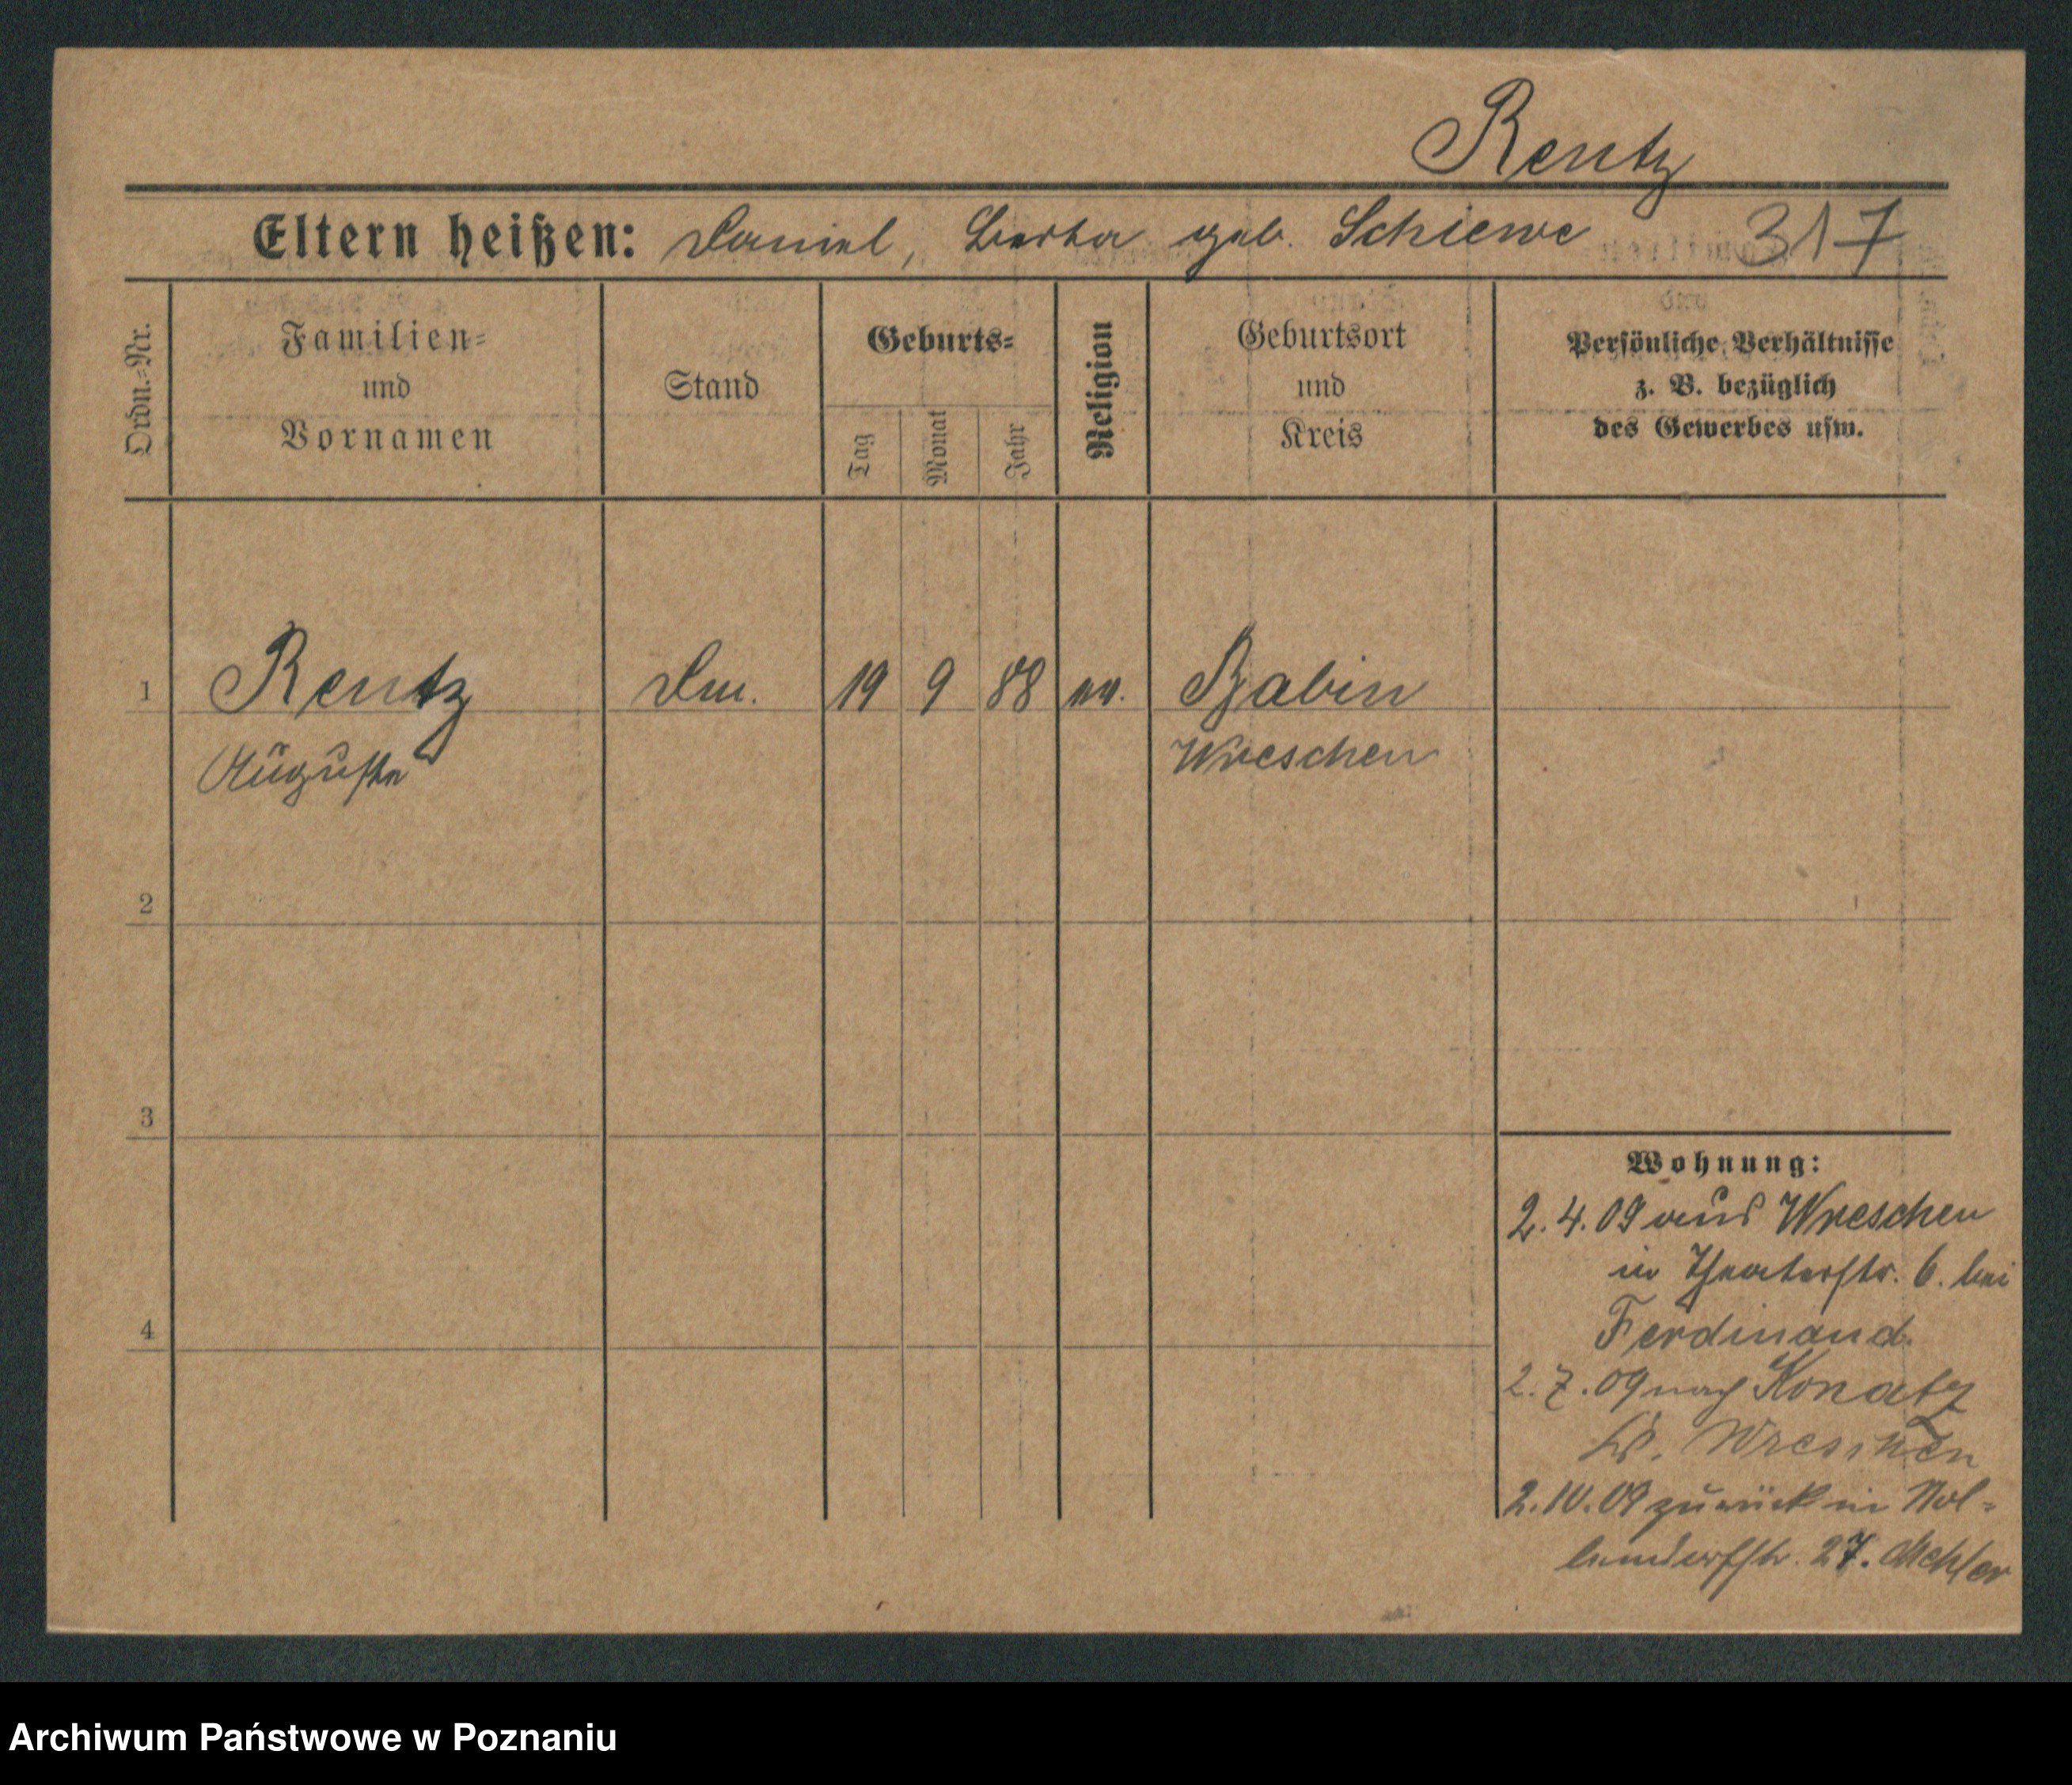 Rentz
Eltern heißen: Daniel, Berta geb. Schiewe 317
Ordn.-Nr.
Familien-
und
Vornamen
Stand
Geburts-
Tag
Monat
Jahr
Religion
Geburtsort
und
Kreis
Persönliche Verhältnisse
z. B. bezüglich
des Gewerbes usw.
1 Rentz Dm. 19 9 88 ev. Babin
Auguste Wreschen
2
3
4
Wohnung:
2. 4. 09 aus Wreschen
in Theaterstr. 6. bei
Ferdinand.
2. 7. 09 nach
Wreschen
2. 10. 09 zurück in Nol-
lendorfstr. 27.
Archiwum Państwowe w Poznaniu